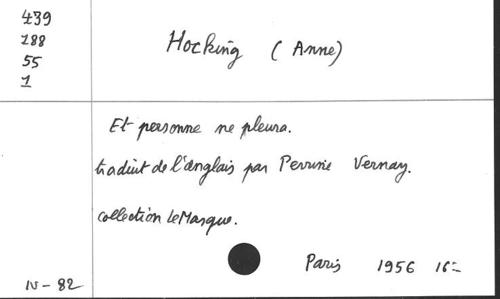 439
188
55
1
Hocking (Anne)
Et personne ne pleura.
traduit de l'anglais par Perrine Vernay.
collection Le Masque.
Paris 1956 16=
IV - 82